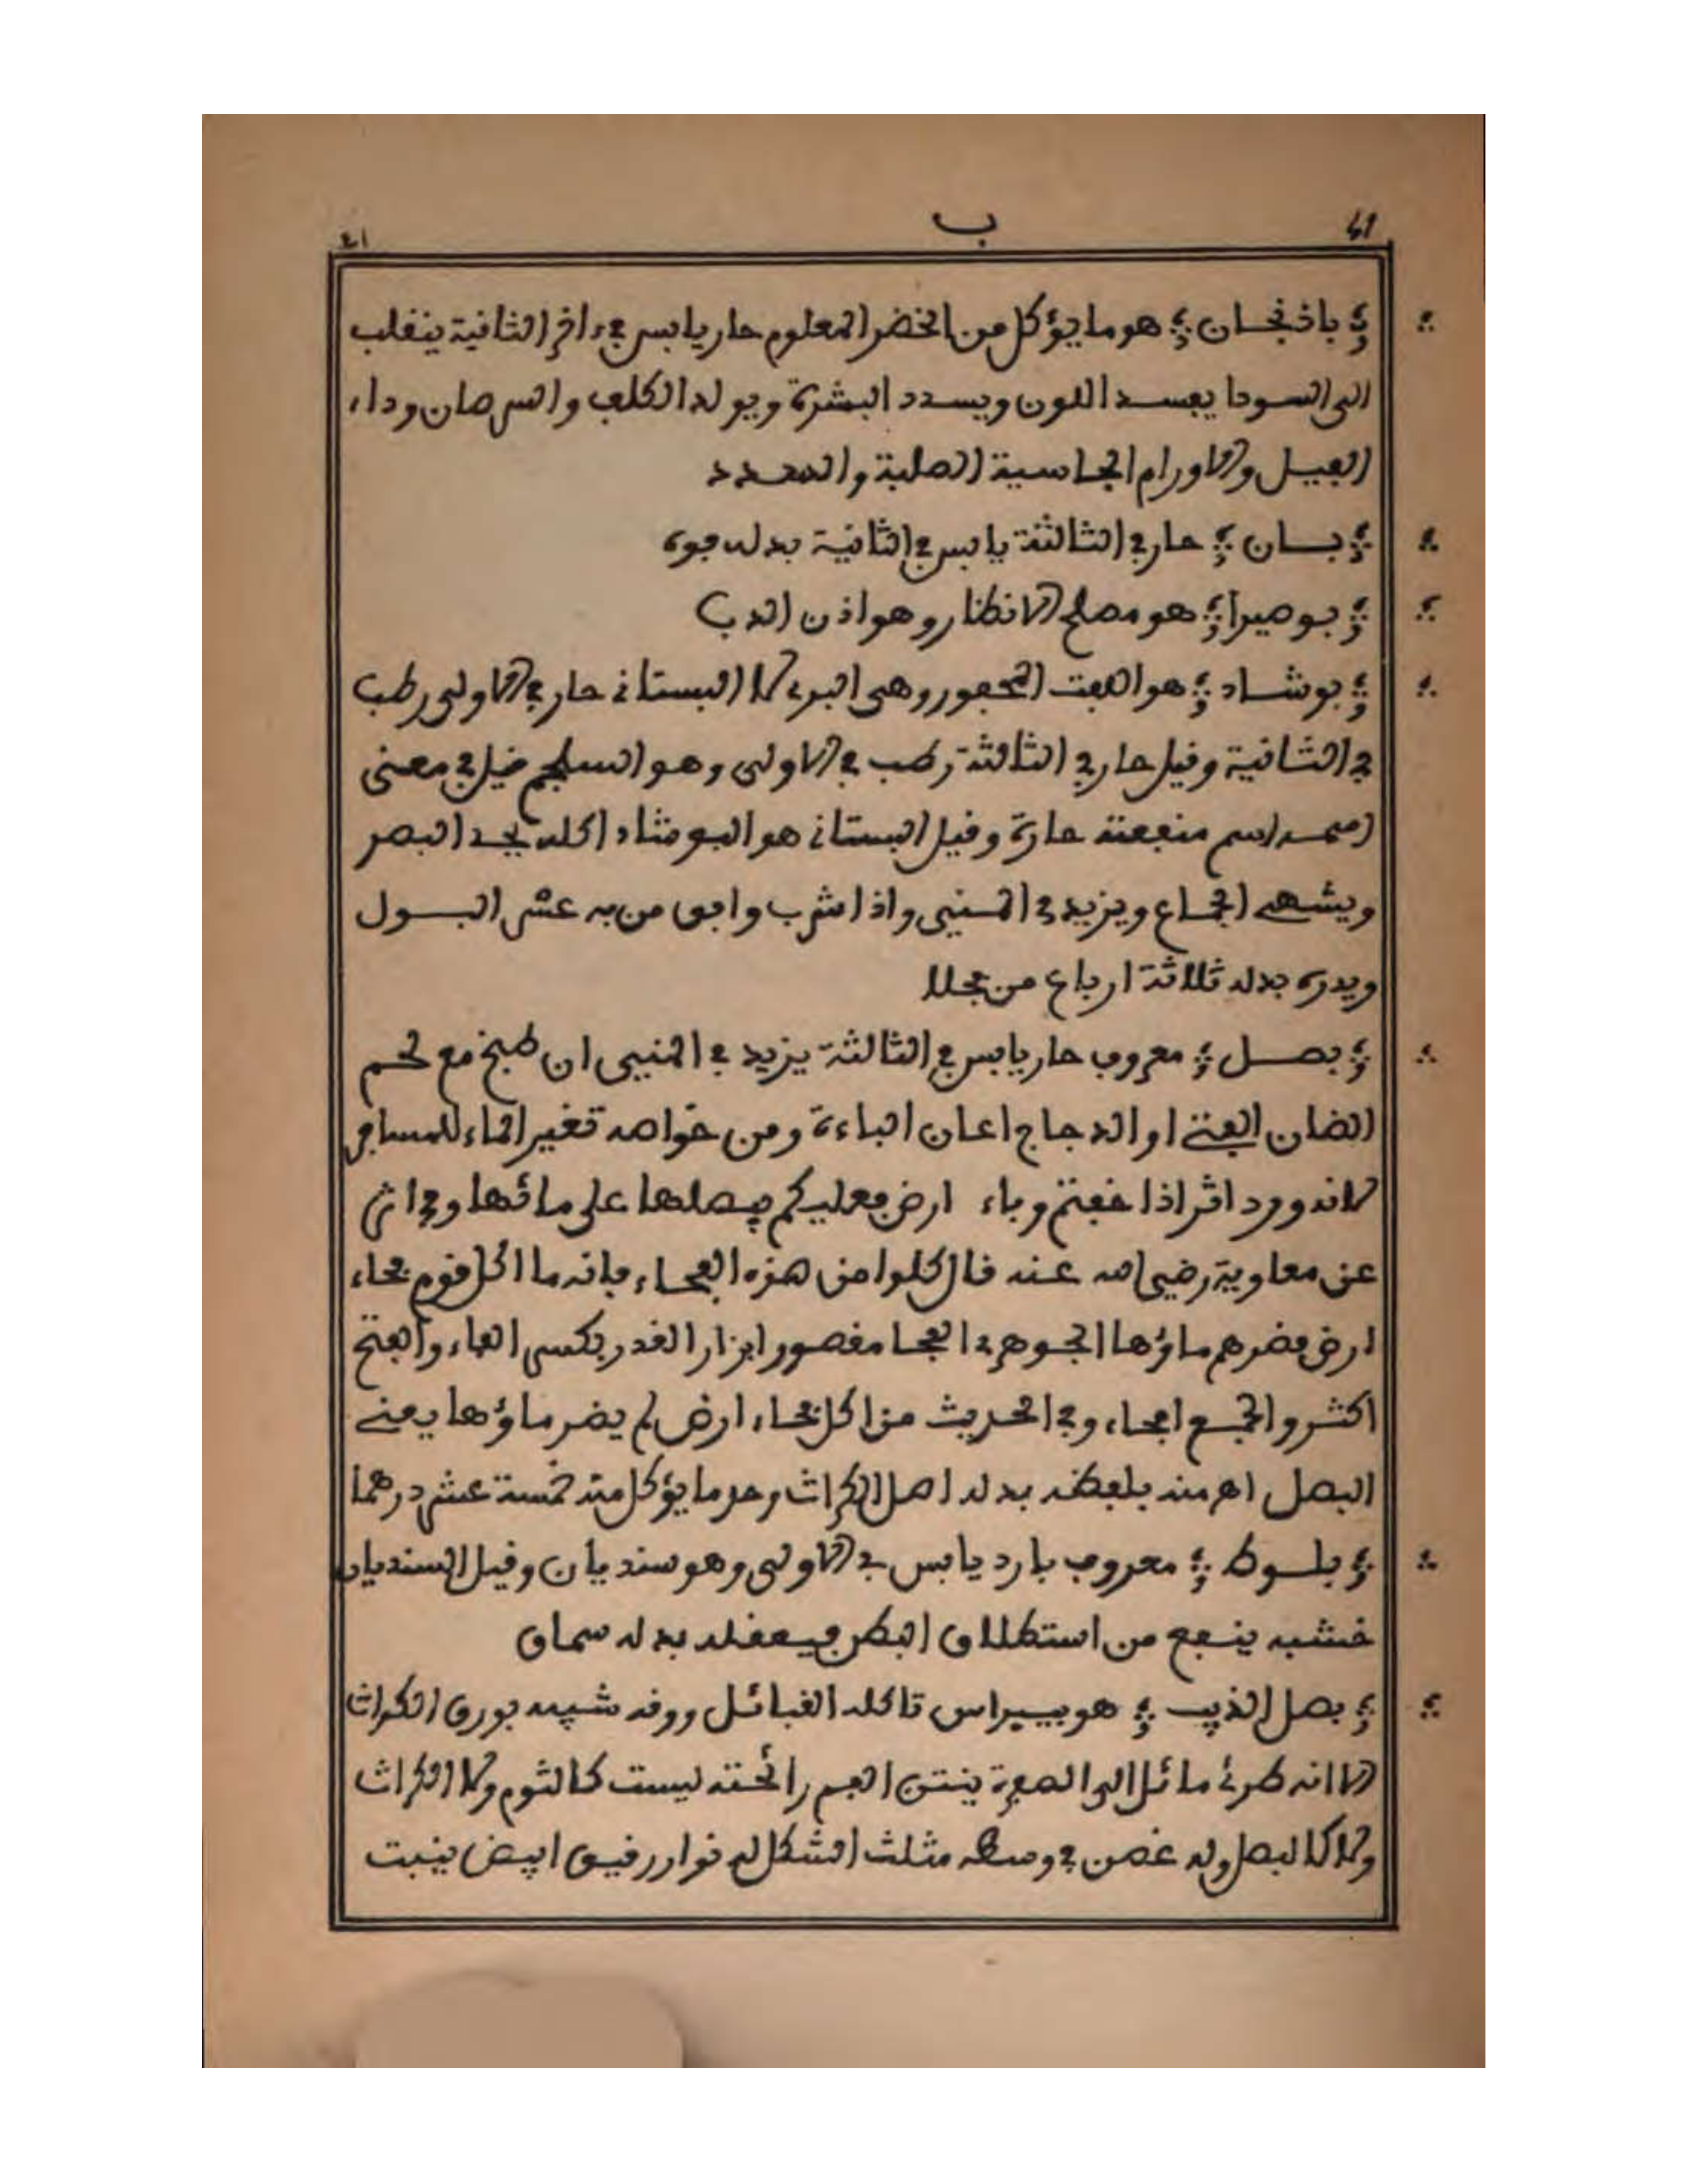 ب
باذنجان هو ما يؤكل من الخضر المعلوم حار يابس في اخر الثانية ينقلب
الى السودا يفسد اللون ويسدد البشرة ويولد الكلف والسرطان وداء
الفيل والاورام الجاسية الصلبة والسدد
بان حار في الثالثة يابس في الثانية بدله فوة
بوصيرا هو مصلح الانظار وهو اذن الدب
بوشاد هو اللفت وهي البري لا البستاني حار في الاولى رطب
في الثانية وقيل حار في الثالثة رطب في الاولى وهو السلجم قيل في معنى
اسم منفعته حارة وقيل البستاني هو البوشاد اكله يحد البصر
ويشهي الجماع ويزيد في المني واذا شرب وافق من به عسر البول
ويدره بدله ثلاثة ارباع من
بصل معروف حار يابس في الثالثة يزيد في المني ان طبخ مع لحم
الضان الفتي او الدجاج اعان الباءة ومن خواصه تغير الماء للمسافر
لانه ورد اثر اذا دخلتم وباء ارض فعليكم ببصلها على مائها وفي اثر
عن معاوية رضي الله عنه قال كلوا من هذه الفحاء فانه ما اكل قوم فحاء
ارض فضرهم ماؤها الجوهري الفحا مقصور ابزار القدر بكسر الفاء والفتح
اكثر والجمع افحاء وفي الحديث من اكل فحاء ارض لم يضر ماؤها يعني
البصل اهـ منه بلفظه بدله اصل الكراث وحد ما يؤكل منه خمسة عشر درهما
بلوط معروف بارد يابس في الاولى وهو سنديان وقيل السنديان
خشبه ينفع من استطلاق البطن فيعقله بدله سماق
بصل الذيب هو بيبراس تاكله القبائل وورقه شبيه بورق الكراث
الا انه طري مائل الى الصفرة ينتن الفم رائحته ليست كالثوم ولا الكراث
ولا كالبصل وله غصن في وسطه مثلث الشكل له نوار رقيق ابيض ينبت